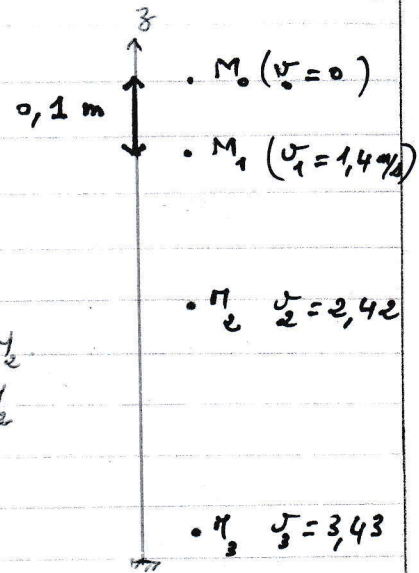 z
M₀ (v₀ = 0)
0,1 m
M₁ (v₁ = 1,4 m/s)
M₂ v₂ = 2,42
M₃ v₃ = 3,43